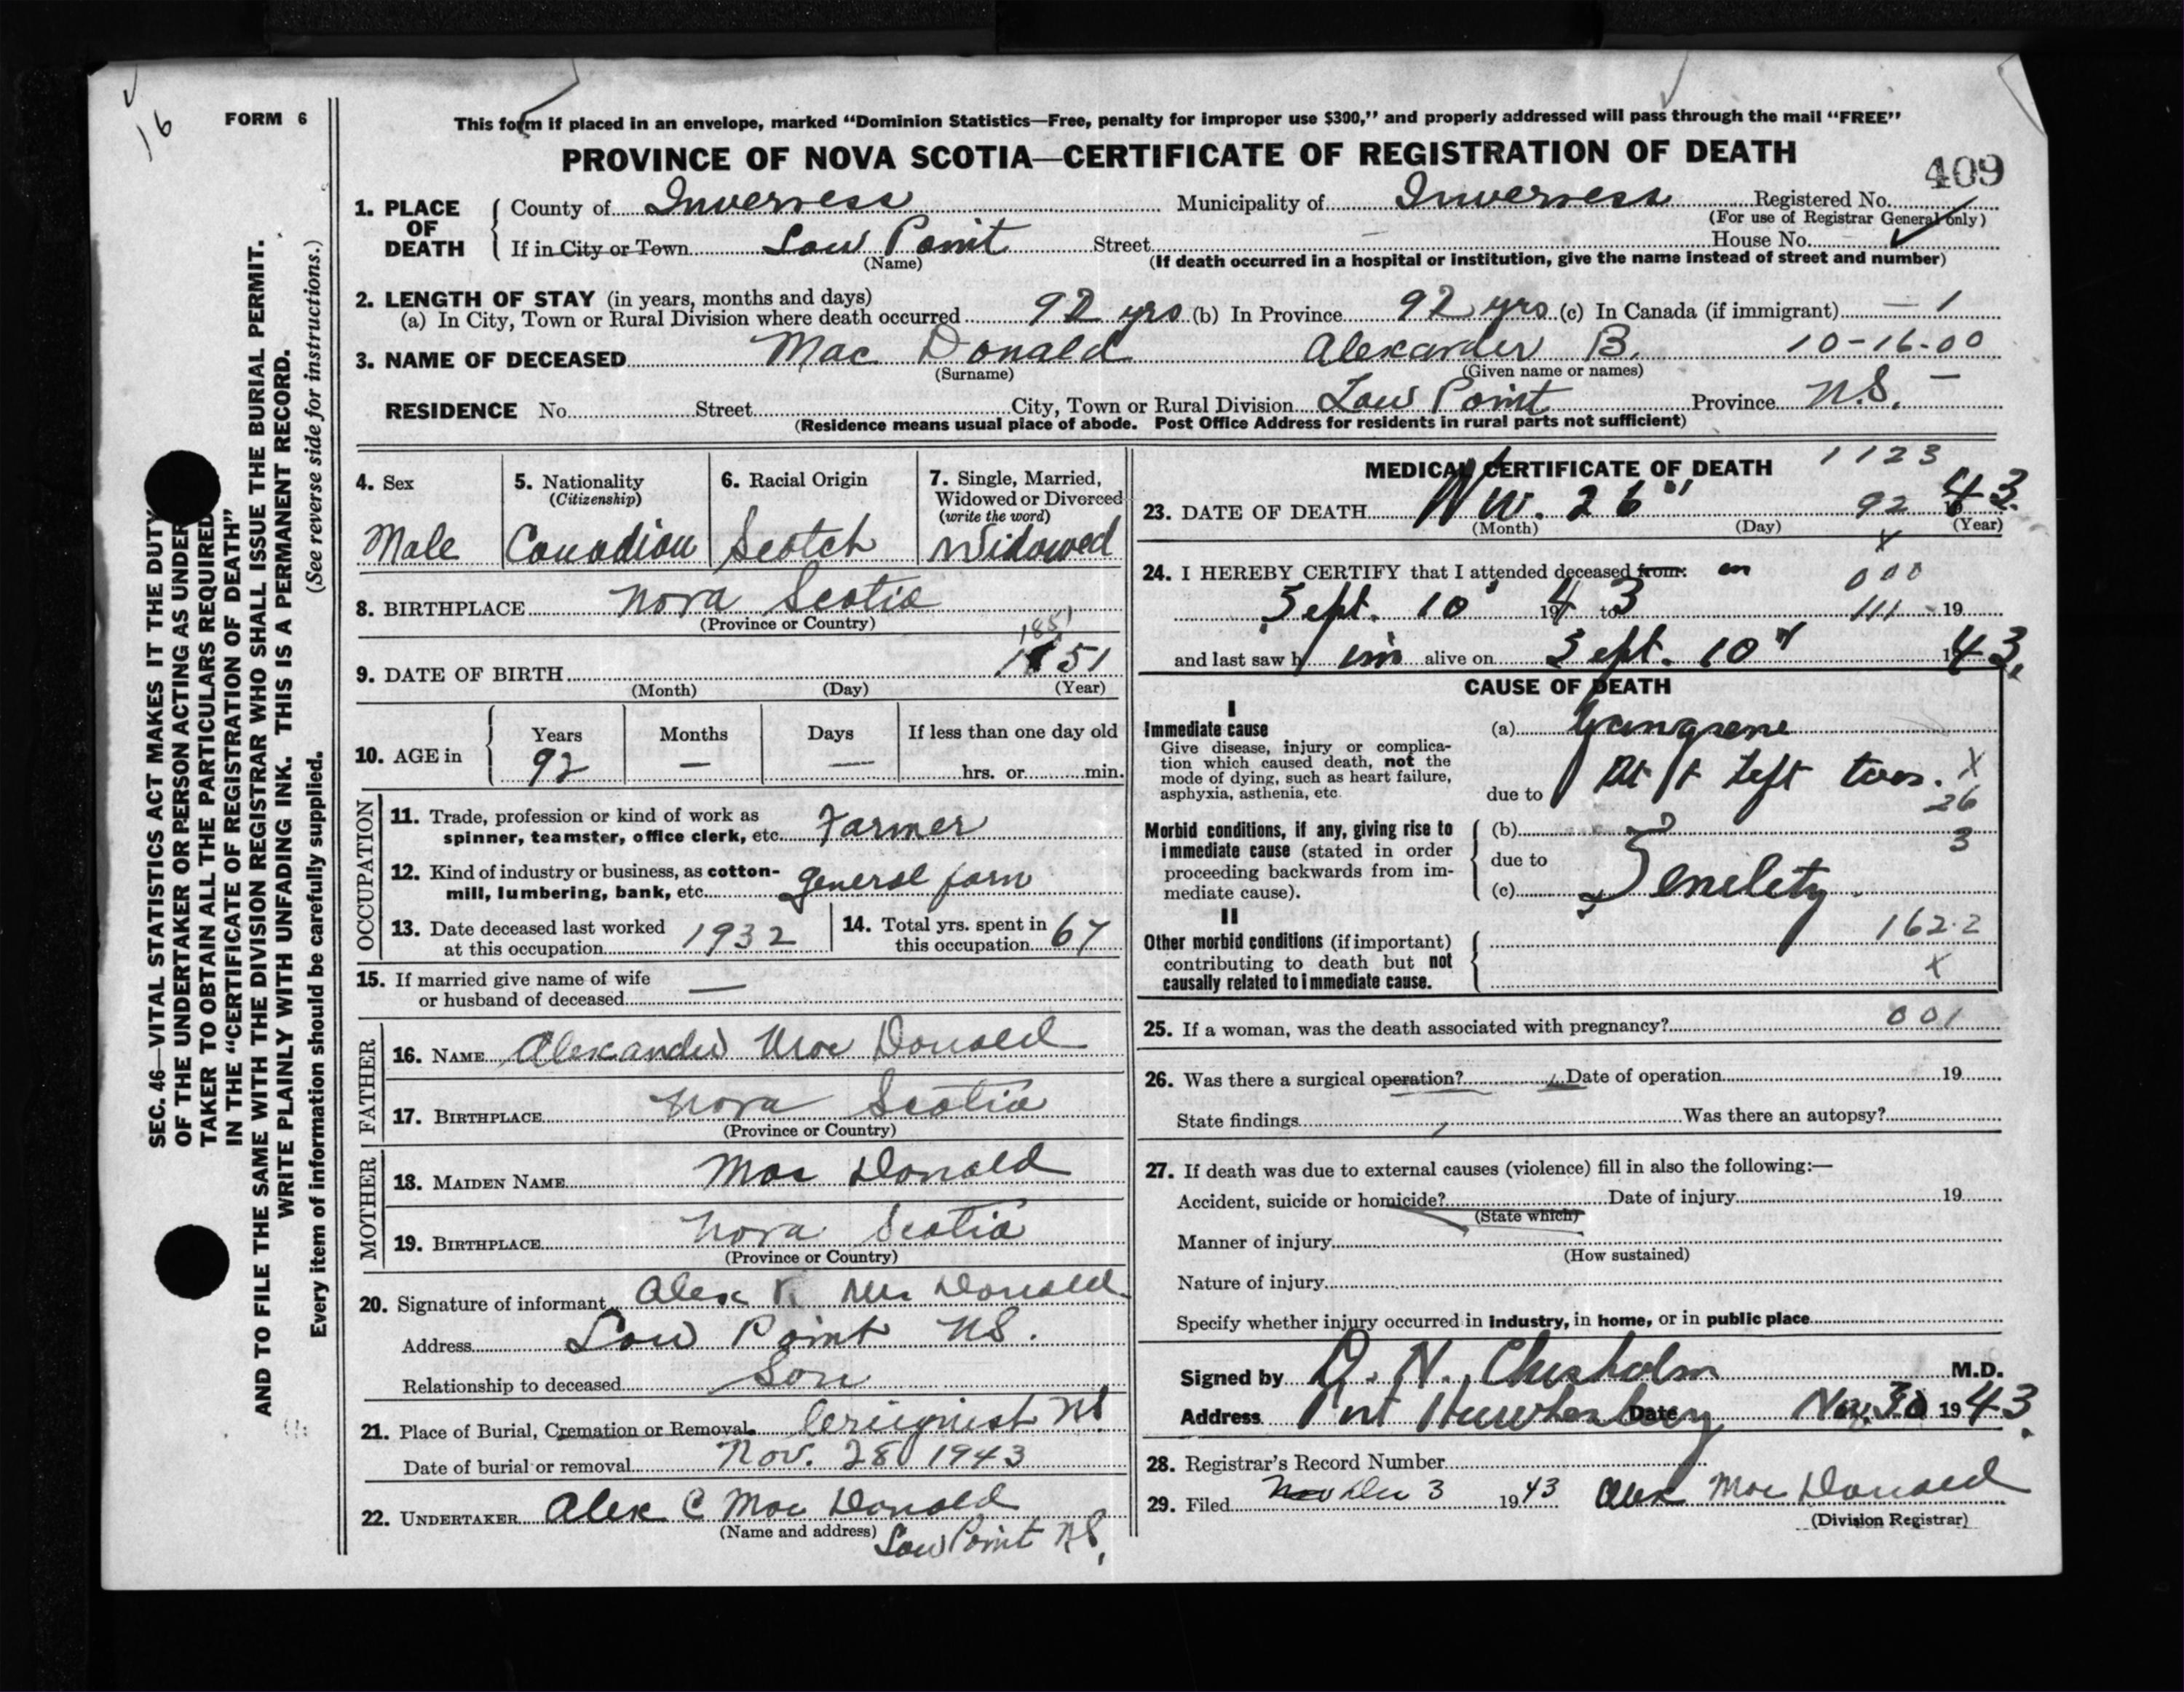 16
FORM 6
This form if placed in an envelope, marked “Dominion Statistics—Free, penalty for improper use $300,” and properly addressed will pass through the mail “FREE”
PROVINCE OF NOVA SCOTIA—CERTIFICATE OF REGISTRATION OF DEATH
409
SEC. 46—VITAL STATISTICS ACT MAKES IT THE DUTY
OF THE UNDERTAKER OR PERSON ACTING AS UNDER
TAKER TO OBTAIN ALL THE PARTICULARS REQUIRED
IN THE “CERTIFICATE OF REGISTRATION OF DEATH”
AND TO FILE THE SAME WITH THE DIVISION REGISTRAR WHO SHALL ISSUE THE BURIAL PERMIT.
WRITE PLAINLY WITH UNFADING INK. THIS IS A PERMANENT RECORD.
Every item of information should be carefully supplied. (See reverse side for instructions.)
1. PLACE OF DEATH
County of Inverness Municipality of Inverness Registered No.
(For use of Registrar General only)
If in City or Town Low Point Street House No.
(Name) (If death occurred in a hospital or institution, give the name instead of street and number)
2. LENGTH OF STAY (in years, months and days)
(a) In City, Town or Rural Division where death occurred 92 yrs (b) In Province 92 yrs (c) In Canada (if immigrant) — 1
3. NAME OF DECEASED Mac Donald Alexander B. 10-16-00
(Surname) (Given name or names)
RESIDENCE No. Street City, Town or Rural Division Low Point Province N.S. —
(Residence means usual place of abode. Post Office Address for residents in rural parts not sufficient)
4. Sex
Male
5. Nationality
(Citizenship)
Canadian
6. Racial Origin
Scotch
7. Single, Married,
Widowed or Divorced
(write the word)
Widowed
8. BIRTHPLACE Nova Scotia
(Province or Country)
1851
9. DATE OF BIRTH 1851
(Month) (Day) (Year)
10. AGE in
Years Months Days If less than one day old
92 — — hrs. or min.
OCCUPATION
11. Trade, profession or kind of work as
spinner, teamster, office clerk, etc. Farmer
12. Kind of industry or business, as cotton-
mill, lumbering, bank, etc. general farm
13. Date deceased last worked
at this occupation 1932
14. Total yrs. spent in
this occupation 67
15. If married give name of wife
or husband of deceased —
FATHER
16. NAME Alexander Mac Donald
17. BIRTHPLACE Nova Scotia
(Province or Country)
MOTHER
18. MAIDEN NAME Mac Donald
19. BIRTHPLACE Nova Scotia
(Province or Country)
20. Signature of informant Alex Mac Donald
Address Low Point NS.
Relationship to deceased Son
21. Place of Burial, Cremation or Removal NS
Date of burial or removal Nov. 28 1943
22. UNDERTAKER Alex C Mac Donald
(Name and address) Low Point NS.
MEDICAL CERTIFICATE OF DEATH 1123
23. DATE OF DEATH Nov. 26" 92 43.
(Month) (Day) (Year)
x
24. I HEREBY CERTIFY that I attended deceased from: on 000
Sept. 10" 1943 to 111 19
and last saw h im alive on Sept. 10" 1943.
CAUSE OF DEATH
I
Immediate cause
Give disease, injury or complica-
tion which caused death, not the
mode of dying, such as heart failure,
asphyxia, asthenia, etc.
(a) Gangrene
due to Left toes. X
26
Morbid conditions, if any, giving rise to
immediate cause (stated in order
proceeding backwards from im-
mediate cause).
(b) 3
due to
(c) Senility.
II
Other morbid conditions (if important)
contributing to death but not
causally related to immediate cause.
162.2
x
25. If a woman, was the death associated with pregnancy? 001
26. Was there a surgical operation? Date of operation 19
State findings Was there an autopsy?
27. If death was due to external causes (violence) fill in also the following:—
Accident, suicide or homicide? Date of injury 19
(State which)
Manner of injury
(How sustained)
Nature of injury
Specify whether injury occurred in industry, in home, or in public place
Signed by Chisholm M.D.
Address Port Hawkesbury Date Nov. 30 1943.
28. Registrar's Record Number
29. Filed Nov Dec 3 1943 Alex Mac Donald
(Division Registrar)